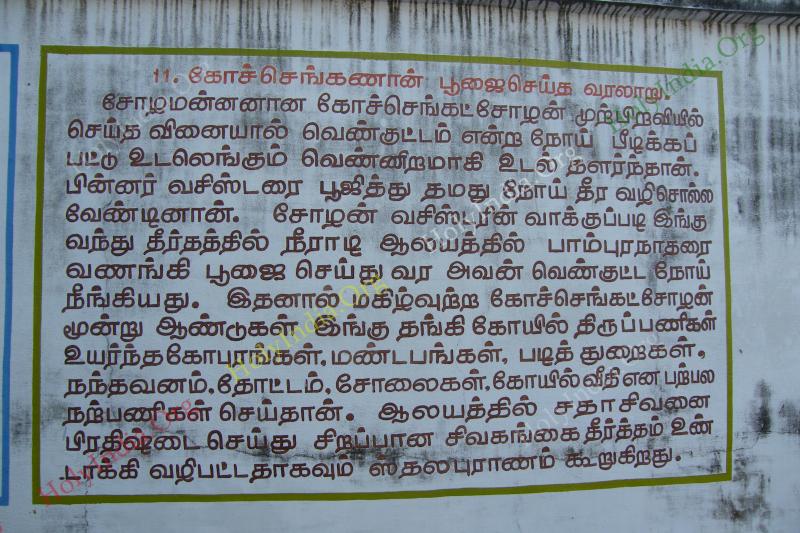 11. கோச்செங்கணான் பூஜைசெய்க வரலாறு.
சோழமன்னனான கோச்செங்கட்சோழன் முற்பிறவியில்
செய்த வினையால் வெண்குட்டம் என்ற நோய் பீடிக்கப்
பட்டு உடலெங்கும் வெண்ணிறமாகி உடல் தளர்ந்தான்.
பின்னர் வசிஸ்டரை பூஜித்து தமது நோய் தீர வழிசொல்ல
வேண்டினான். சோழன் வசிஸ்டரின் வாக்குப்படி இங்கு
வந்து தீர்கத்தில் நீராடி ஆலயத்தில் பாம்புரநாதரை
வணங்கி பூஜை செய்து வர அவன் வெண்குட்ட நோய்
நீங்கியது. இதனால் மகிழ்வுற்ற கோச்செங்கட்சோழன்
மூன்று ஆண்டுகள் இங்கு தங்கி கோயில் திருப்பணிகள்
உயர்ந்தகோபுரங்கள், மண்டபங்கள், படித் துறைகள்,
நந்தவனம், தோட்டம், சோலைகள், கோயில் வீதி என பற்பல
நற்பணிகள் செய்தான். ஆலயத்தில் சதாசிவனை
பிரதிஷ்டை செய்து சிறப்பான சிவகங்கை தீர்த்தம் உண்
டாக்கி வழிபட்டதாகவும் ஸ்தலபுராணம் கூறுகிறது.
HolyIndia.Org
HolyIndia.Org
HolyIndia.Org
HolyIndia.Org
HolyIndia.Org